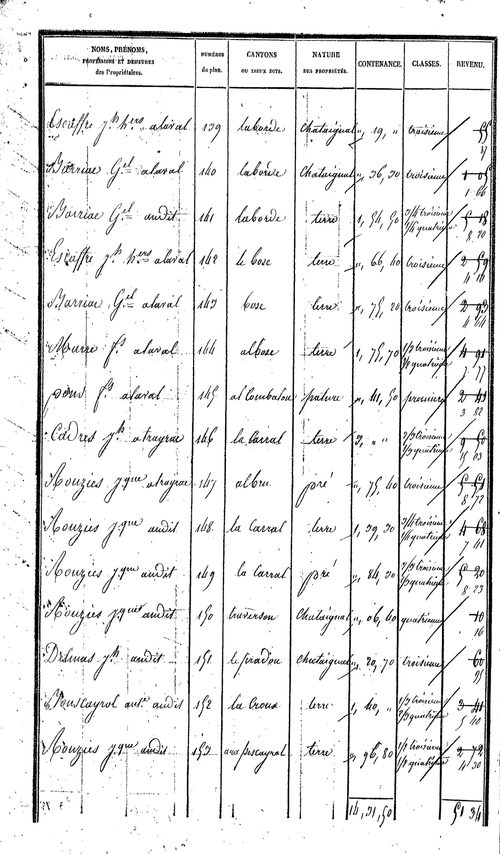 NOMS, PRÉNOMS, PROFESSIONS ET DEMEURES des Propriétaires. NUMÉROS du plan. CANTONS OU LIEUX DITS. NATURE DES PROPRIÉTÉS. CONTENANCE. CLASSES. REVENU.
Escaffre jh hers alaval 139 laborde Chataignal ,, 19, ,, troisieme 55
Barriac Gel alaval 140 laborde Chataignal ,, 36, 30 troisieme 1 05
1 66
Barriac Gel audit 141 laborde terre 1, 54, 50 3/4 troisieme 1/4 quatrieme 5 18
8 20
Escaffre jh hers alaval 142 le bosc terre ,, 66, 40 troisieme 2 59
4 16
Barriac Gel alaval 143 bosc terre ,, 75, 20 troisieme 2 93
4 64
Marre fs alaval 144 albosc terre 1, 75, 70 1/3 troisieme quatrieme 4 91
7 77
pons fs alaval 145 al Combalou pature ,, 41, 50 premiere 2 41
3 82
Cadres jh atrayrac 146 la Carral terre 3, ,, ,, quatrieme 9 50
15 03
Rouzies jque atrayrac 147 albru pré ,, 75, 40 troisieme 5 51
8 72
Rouzies jque audit 148 la Carral terre 1, 39, 30 3/4 troisieme 1/4 quatrieme 4 68
7 41
Rouzies jque audit 149 la Carral pré ,, 84, 30 troisieme quatrieme 5 20
8 23
Rouzies jque audit 150 traverson Chataignal ,, 06, 40 quatrieme 10
16
Delmas jh audit 151 le pradou chataignal ,, 20, 70 troisieme 60
95
Pouscayrol antne audit 152 la Croux terre 1, 40, ,, 1/3 troisieme 2/3 quatrieme 3 41
5 40
Rouzies jque audit 153 aux pescayral terre ,, 96, 80 1/2 troisieme 1/2 quatrieme 2 72
4 30
14, 31, 50 51 34